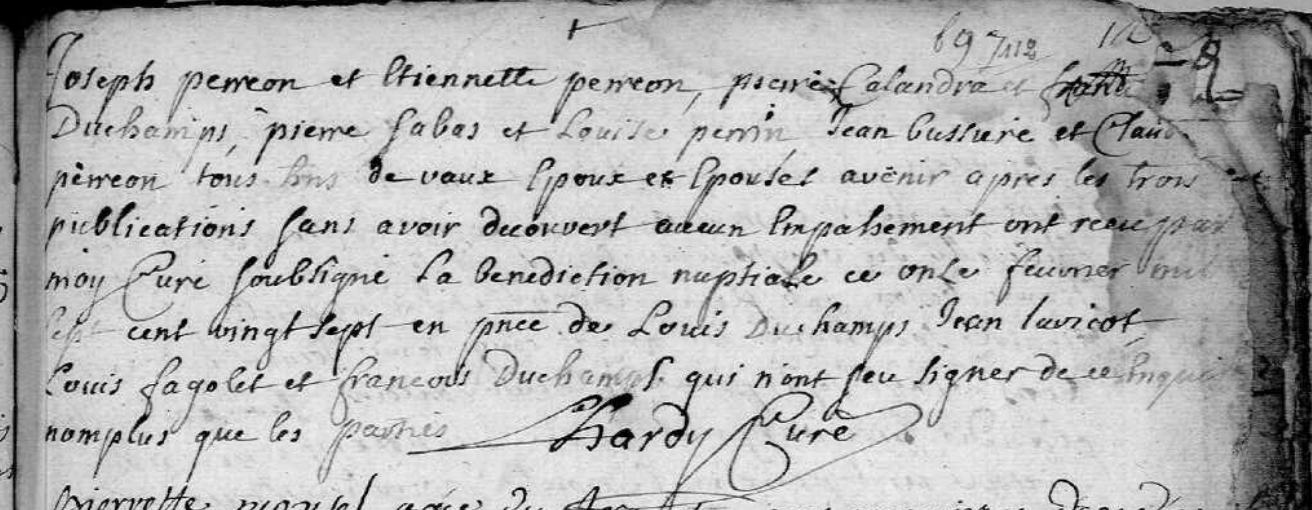 69 7112
Joseph perreon et Etiennette perreon, pierre Calandra et
Duchamps, pierre Sabas et Louise perrin, Jean bussure et Claud
perreon tous de vaux Epoux et Epouses avënir apres les trois
publications sans avoir decouvert aucun Empahement ont receu par
moy Curé soubsigné la benediction nuptiale ce onse feuvrier mil
sept cent vingt sept en pnce de Louis Duchamps Jean lavicot
Louis fagolet et francois Duchamps qui n'ont sceu signer de ce enquis
nomplus que les parties Hardy Curé
pierrette